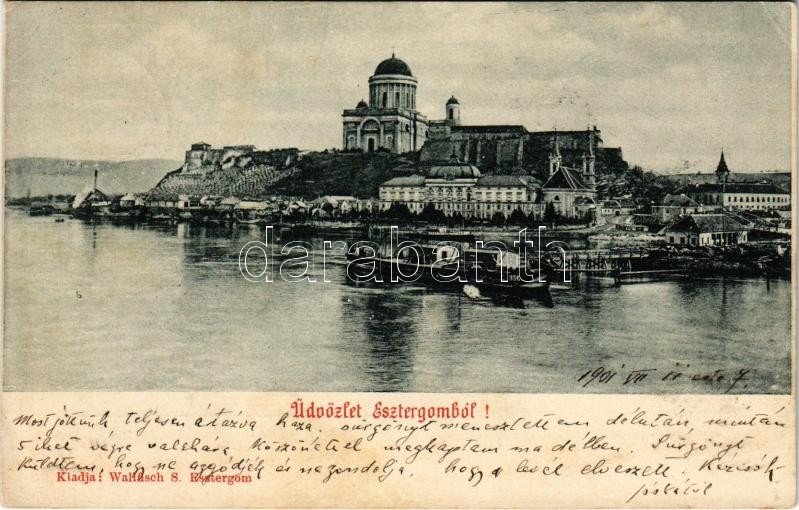 darabanth
1901 VII 11 este 7.
Üdvözlet Esztergomból !
Most jöttünk teljesen átázva haza. Sürgönyt menesztettem délután, miután
5 ihet végre valahára köszönettel megkaptam ma délben. Sürgönyt
küldtem, hogy ne aggódjék és ne gondolja, hogy a levél elveszett. Kézcsók
Kiadja: Wallfisch S. Esztergom
Jóskától